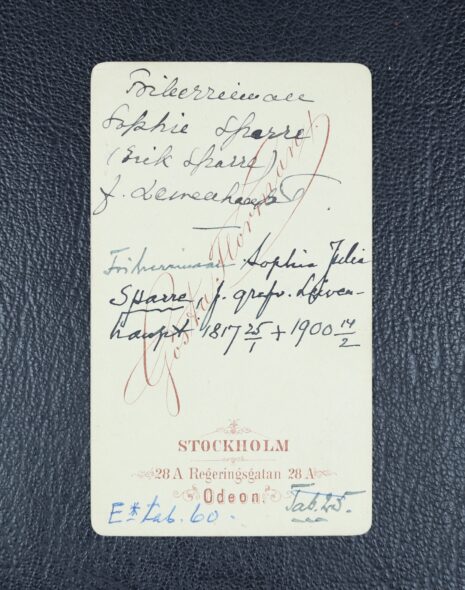 Friherrinnan
Sophie Sparre
(Erik Sparre)
f. Lewenhaupt.
Friherrinnan Sophia Julia
Sparre, f. grefv. Leven-
haupt. 1817 25/1 + 1900 14/2
Gösta Florman
STOCKHOLM
28 A Regeringsgatan 28 A
Odeon.
E* tab. 60.
Tab. 25.